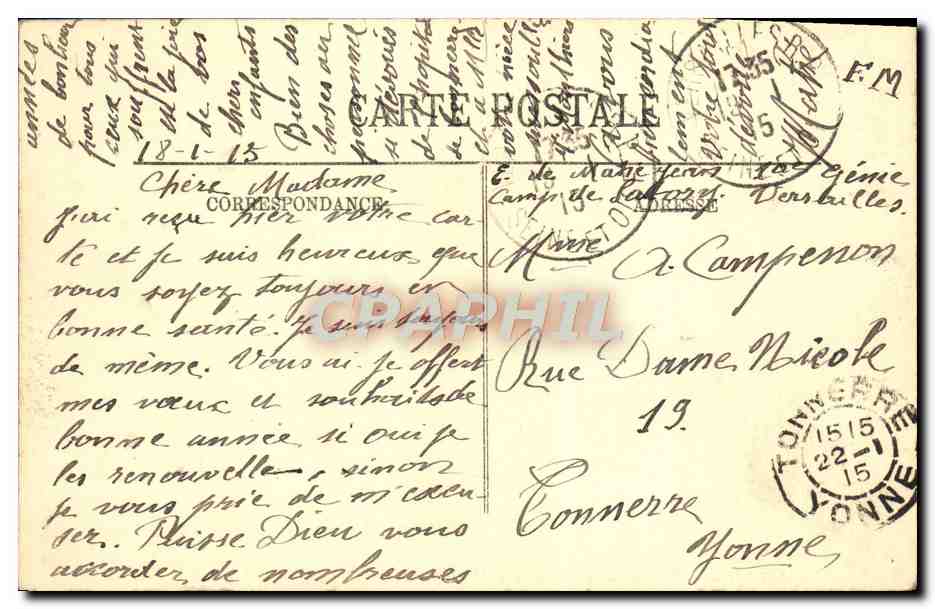 CARTE POSTALE
CORRESPONDANCE
ADRESSE
F M
18-1-15
Chère Madame
J'ai reçu hier votre car-
te et je suis heureux que
vous soyez toujours en
bonne santé. Je suis toujours
de même. Vous ai-je offert
mes vœux et souhaits de
bonne année si oui je
les renouvelle, sinon
je vous prie de m'excu-
ser. Puisse Dieu vous
accorder de nombreuses
années
de bonheur
pour tous
ceux qui
souffrent
et la joie
de vos
chers
enfants
Bien des
choses au
personnel
si dévoués
de l'hopital
et à Mlle
votre nièce
à vous
cordia
lement
votre tout
dévoué
E. de Marie Jean 1er Génie
Camp de Satory. Versailles.
Mme A. Campenon
Rue Dame Nicole
19.
Tonnerre
Yonne
TONNERRE
1515
22-1
15
YONNE
17 35
15
SEINE ET O
CPAPHIL